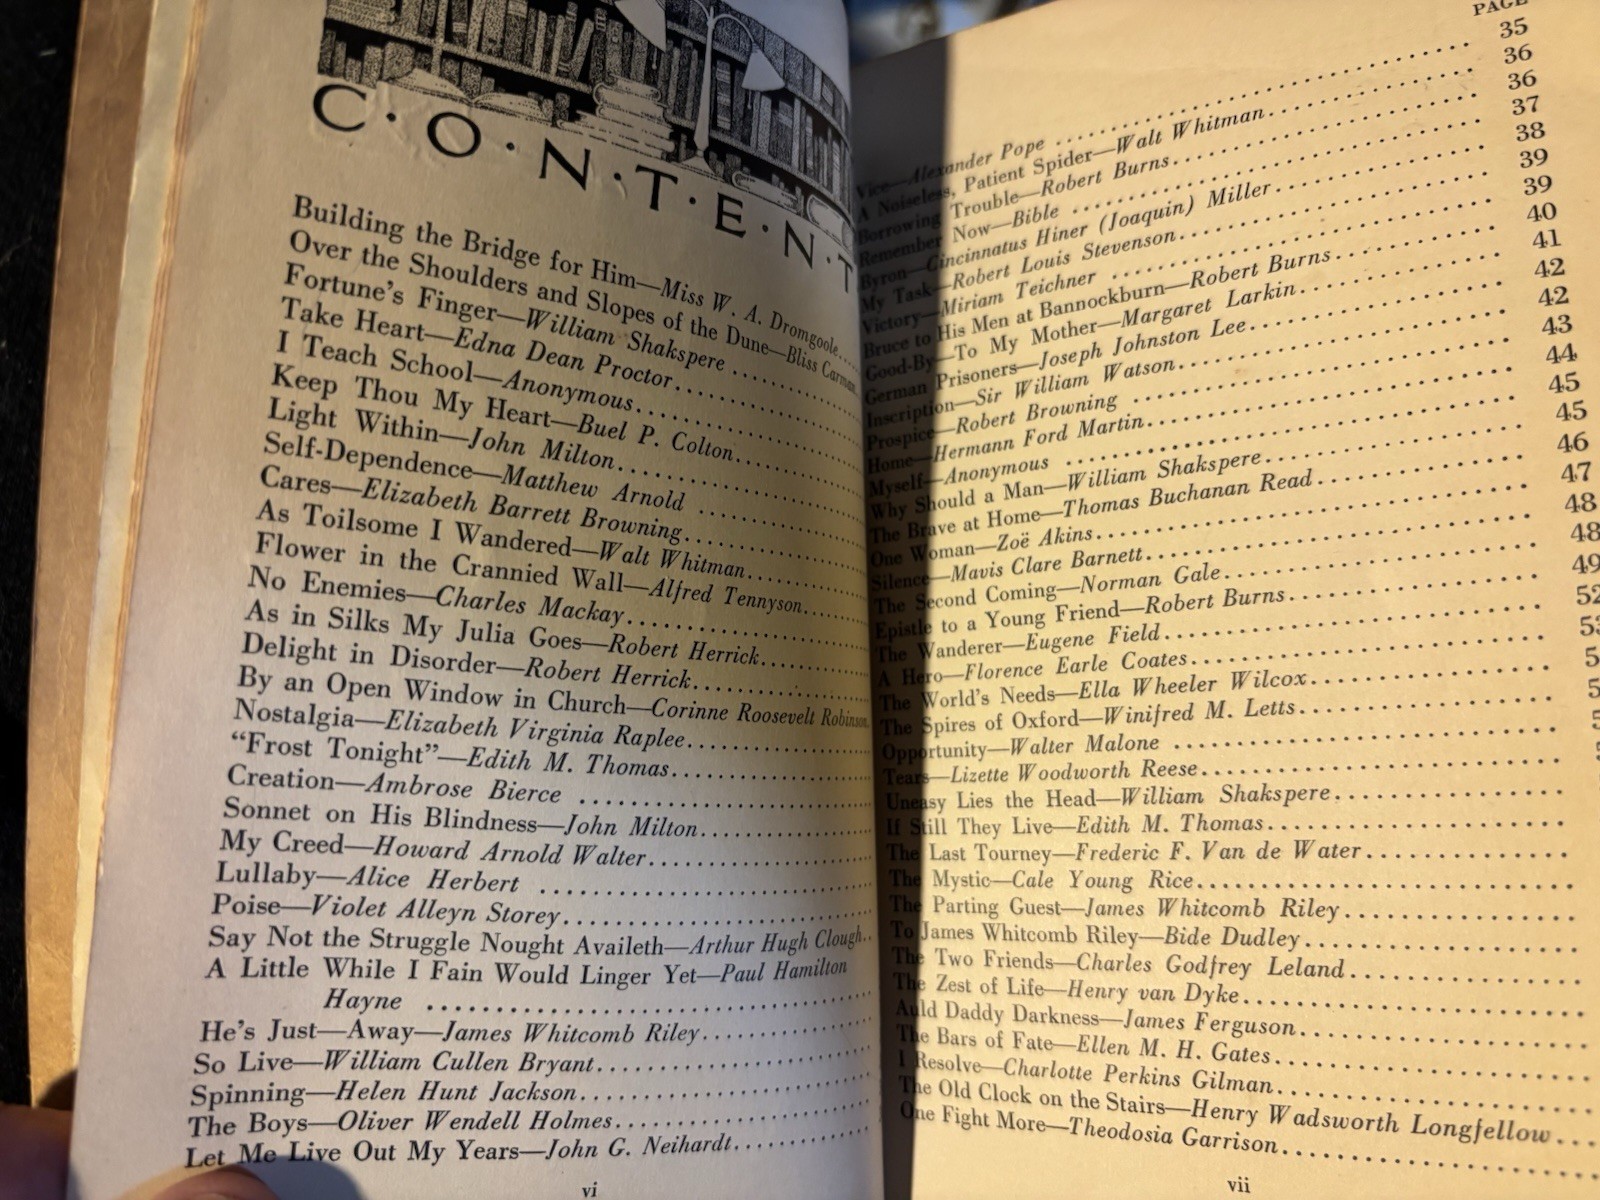 C·O·N·T·E·N·T
Building the Bridge for Him—Miss W. A. Dromgoole....
Over the Shoulders and Slopes of the Dune—Bliss Carman
Fortune's Finger—William Shakspere ..........
Take Heart—Edna Dean Proctor..........
I Teach School—Anonymous..........
Keep Thou My Heart—Buel P. Colton..........
Light Within—John Milton..........
Self-Dependence—Matthew Arnold ..........
Cares—Elizabeth Barrett Browning..........
As Toilsome I Wandered—Walt Whitman..........
Flower in the Crannied Wall—Alfred Tennyson..........
No Enemies—Charles Mackay..........
As in Silks My Julia Goes—Robert Herrick..........
Delight in Disorder—Robert Herrick..........
By an Open Window in Church—Corinne Roosevelt Robinson.
Nostalgia—Elizabeth Virginia Raplee..........
"Frost Tonight"—Edith M. Thomas..........
Creation—Ambrose Bierce ..........
Sonnet on His Blindness—John Milton..........
My Creed—Howard Arnold Walter..........
Lullaby—Alice Herbert ..........
Poise—Violet Alleyn Storey..........
Say Not the Struggle Nought Availeth—Arthur Hugh Clough..
A Little While I Fain Would Linger Yet—Paul Hamilton
Hayne ..........
He's Just—Away—James Whitcomb Riley..........
So Live—William Cullen Bryant..........
Spinning—Helen Hunt Jackson..........
The Boys—Oliver Wendell Holmes..........
Let Me Live Out My Years—John G. Neihardt..........
vi
PAGE
Vice—Alexander Pope .......... 35
A Noiseless, Patient Spider—Walt Whitman.......... 36
Borrowing Trouble—Robert Burns.......... 36
Remember Now—Bible .......... 37
Byron—Cincinnatus Hiner (Joaquin) Miller.......... 38
My Task—Robert Louis Stevenson.......... 39
Victory—Miriam Teichner .......... 39
Bruce to His Men at Bannockburn—Robert Burns.......... 40
Good-By—To My Mother—Margaret Larkin.......... 41
German Prisoners—Joseph Johnston Lee.......... 42
Inscription—Sir William Watson.......... 42
Prospice—Robert Browning .......... 43
Home—Hermann Ford Martin.......... 44
Myself—Anonymous .......... 45
Why Should a Man—William Shakspere.......... 45
The Brave at Home—Thomas Buchanan Read.......... 46
One Woman—Zoë Akins.......... 47
Silence—Mavis Clare Barnett.......... 48
The Second Coming—Norman Gale.......... 48
Epistle to a Young Friend—Robert Burns.......... 49
The Wanderer—Eugene Field.......... 52
A Hero—Florence Earle Coates.......... 53
The World's Needs—Ella Wheeler Wilcox..........
The Spires of Oxford—Winifred M. Letts..........
Opportunity—Walter Malone ..........
Tears—Lizette Woodworth Reese..........
Uneasy Lies the Head—William Shakspere..........
If Still They Live—Edith M. Thomas..........
The Last Tourney—Frederic F. Van de Water..........
The Mystic—Cale Young Rice..........
The Parting Guest—James Whitcomb Riley..........
To James Whitcomb Riley—Bide Dudley..........
The Two Friends—Charles Godfrey Leland..........
The Zest of Life—Henry van Dyke..........
Auld Daddy Darkness—James Ferguson..........
The Bars of Fate—Ellen M. H. Gates..........
I Resolve—Charlotte Perkins Gilman..........
The Old Clock on the Stairs—Henry Wadsworth Longfellow...
One Fight More—Theodosia Garrison..........
vii